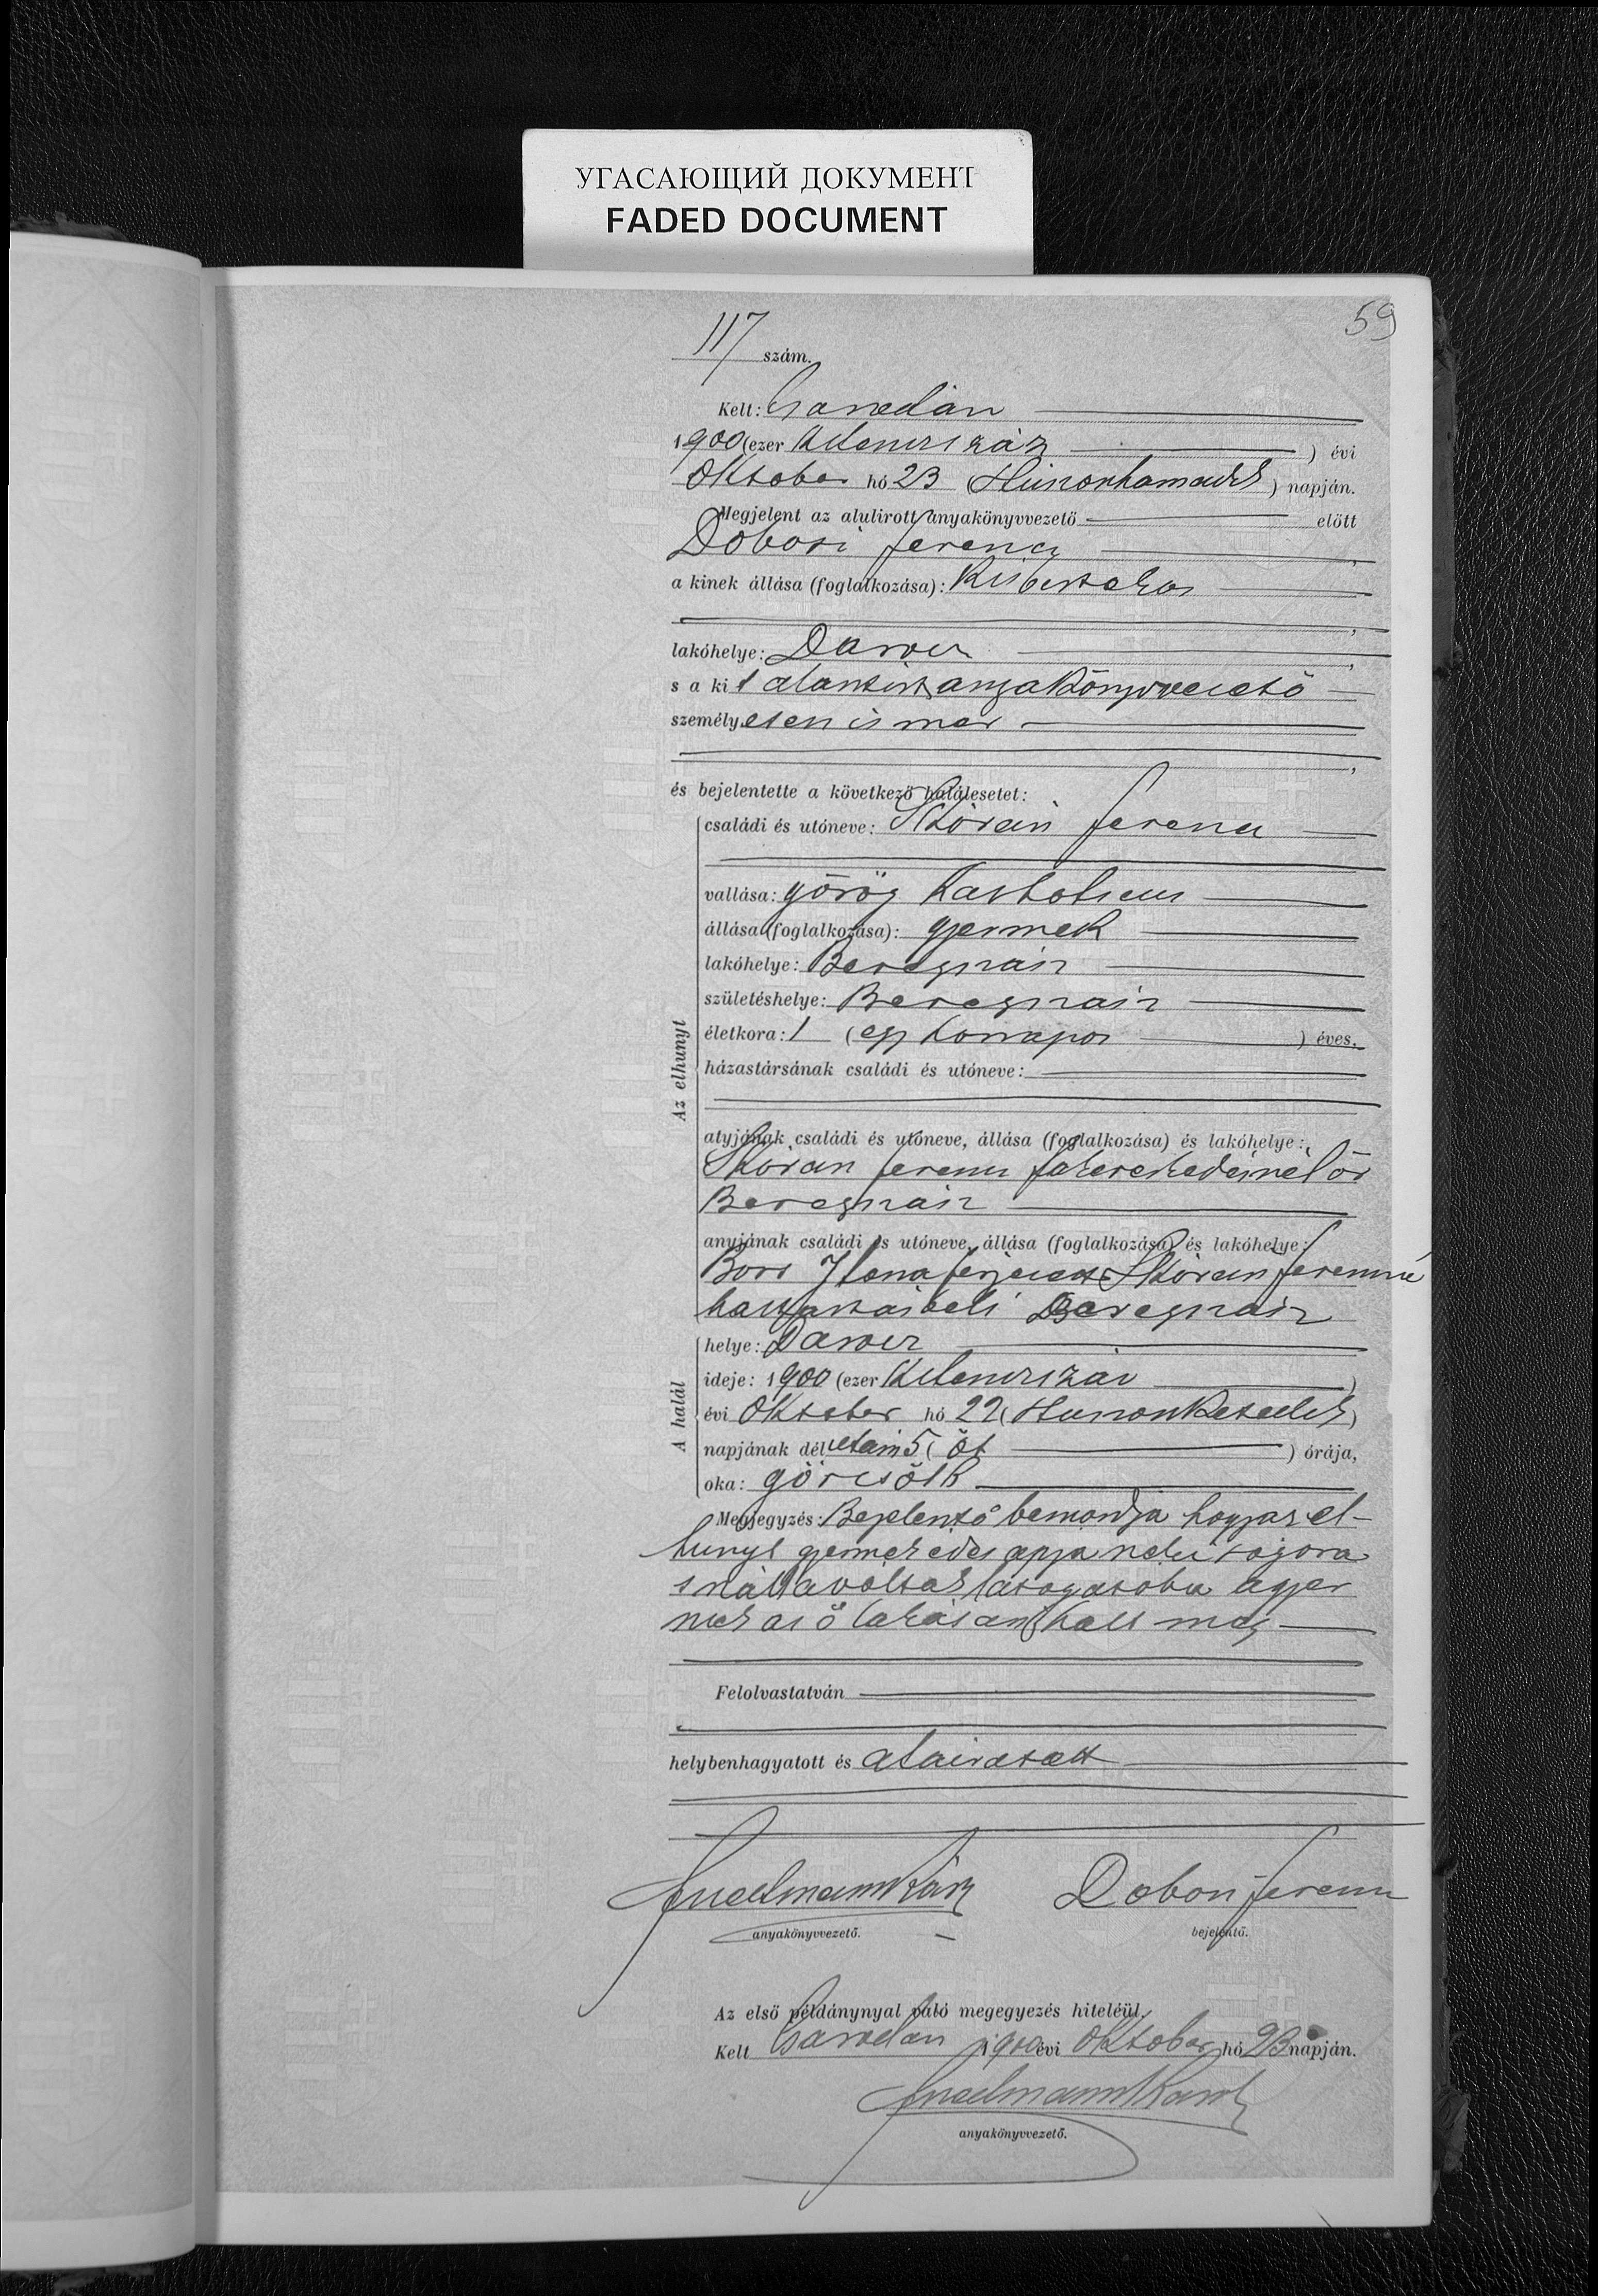 УГАСАЮЩИЙ ДОКУМЕНТ
FADED DOCUMENT
59
117 szám.
Kelt: Csarodán
1900 (ezer kilenczszáz) évi
Oktober hó 23 (Huszonharmadik) napján.
Megjelent az alulirott anyakönyvvezető előtt
Dobosi Ferencz
a kinek állása (foglalkozása): kisbirtokos
lakóhelye: Darócz
s a kit alantirt anyakönyvvezető
személyesen ismer
és bejelentette a következő halálesetet:
családi és utóneve: Ferencz
vallása: görög katholicus
állása (foglalkozása): gyermek
lakóhelye: Beregszász
születéshelye: Beregszász
életkora: 1 (egy honapos) éves,
házastársának családi és utóneve:
Az elhunyt
atyjának családi és utóneve, állása (foglalkozása) és lakóhelye:
Ferencz fakereskedésnél őr
Beregszász
anyjának családi és utóneve, állása (foglalkozása) és lakóhelye:
Ilona férjezett Ferenczné
háztartásbeli Beregszász
helye: Darócz
A halál
ideje: 1900 (ezer kilenczszáz)
évi Oktober hó 22 (Huszonkettedik)
napjának délután 5 (öt) órája,
oka: görcsök
Megjegyzés: Bejelentő bemondja hogy az el-
hunyt gyermek édes apja neki sógora
s nálla voltak látogatóba a gyer
mek az ő lakásán halt meg
Felolvastatván
helybenhagyatott és aláiratott
anyakönyvvezető.
Dobosi Ferencz
bejelentő.
Az első példánynyal való megegyezés hiteléül.
Kelt Csarodán 1900 évi Oktober hó 23 napján.
anyakönyvvezető.